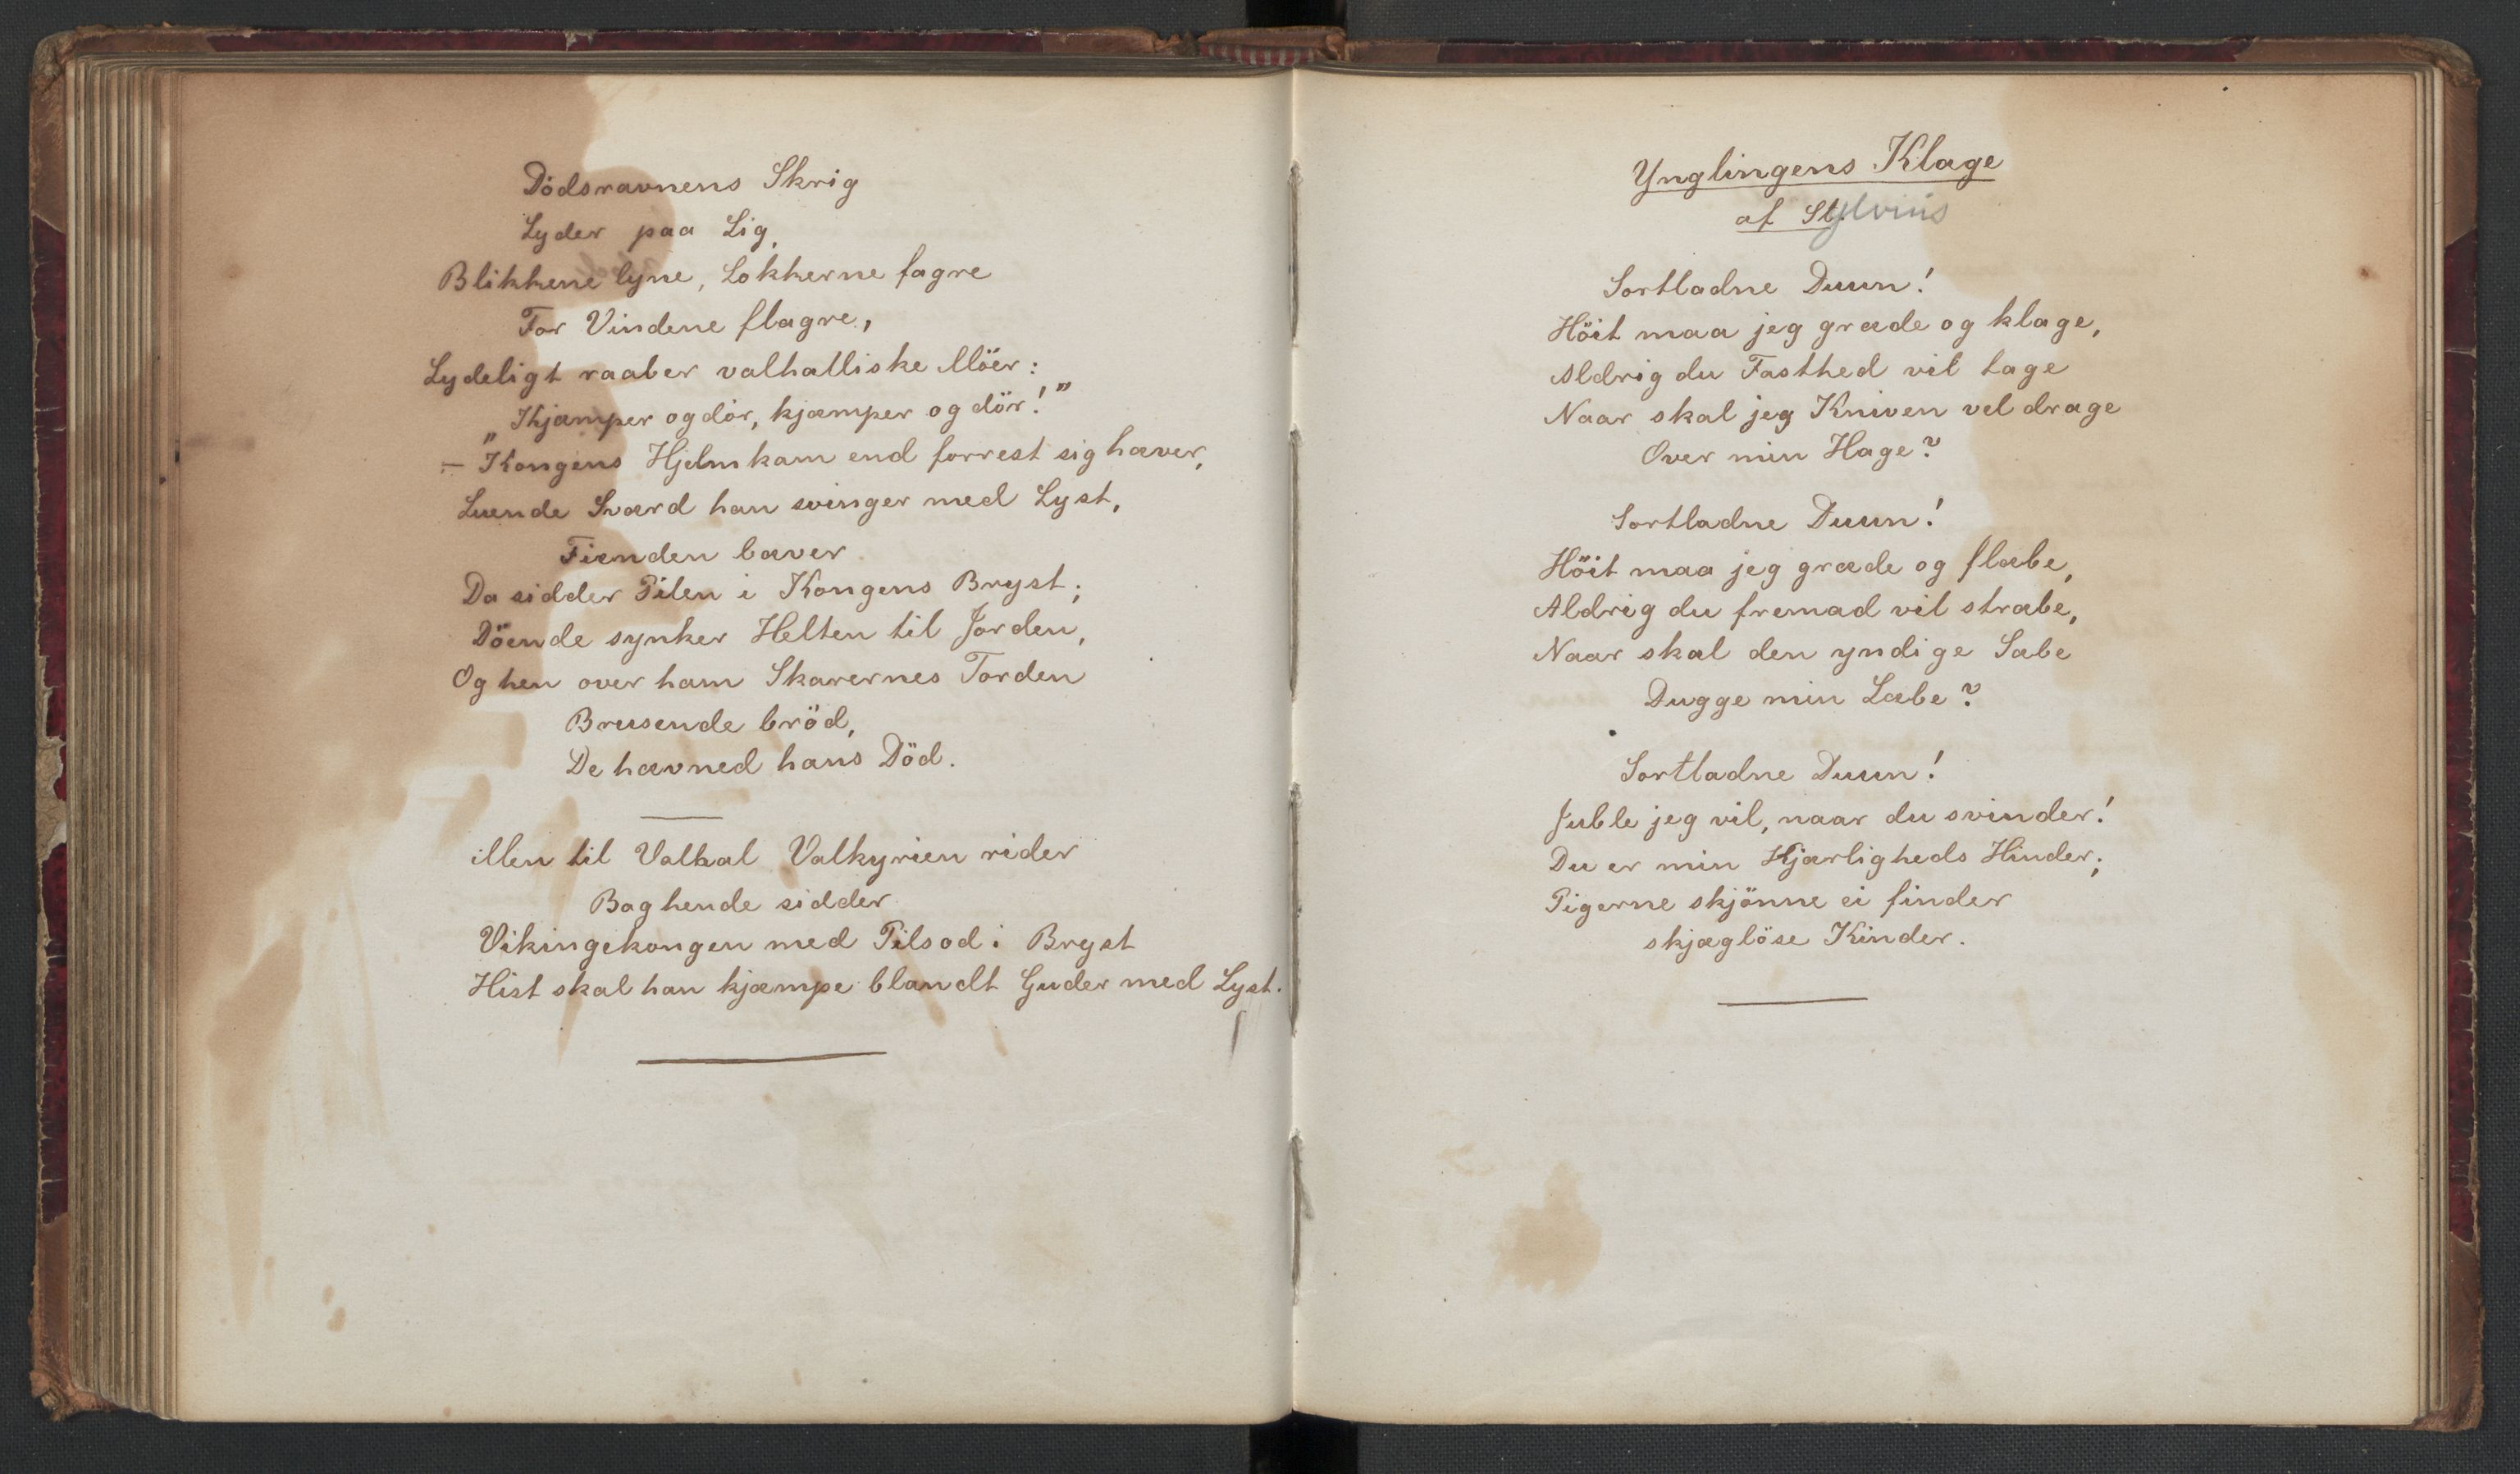 Dödsravnens Skrig
Lyder paa Lig,
Blikkene lyne, Lokkerne fagre
For Vindene flagre,
Lydeligt raaber valhalliske Möer:
„Kjæmper og dör, kjæmper og dör!"
– Kongens Hjelmkam end forrest sig hæver,
Luende Sværd han svinger med Lyst,
Fienden bæver
Da sidder Pilen i Kongens Bryst;
Döende synker Helten til Jorden,
Og hen over ham Skarernes Torden
Brusende bröd,
De hævned hans Död.
Men til Valhal Valkyrien rider
Bag hende sidder
Vikingekongen med Pilsod i Bryst
Hist skal han kjæmpe blandt Guder med Lyst.
Ynglingens Klage
af
Sortladne Duun!
Höit maa jeg græde og klage,
Aldrig du Fasthed vil tage
Naar skal jeg Kniven vel drage
Over min Hage?
Sortladne Duun!
Höit maa jeg græde og flæbe,
Aldrig du fremad vil stræbe,
Naar skal den yndige Sæbe
Dugge min Læbe?
Sortladne Duun!
Juble jeg vil, naar du svinder!
Du er min Kjærligheds Hinder;
Pigerne skjönne ei finder
skjæglöse Kinder.